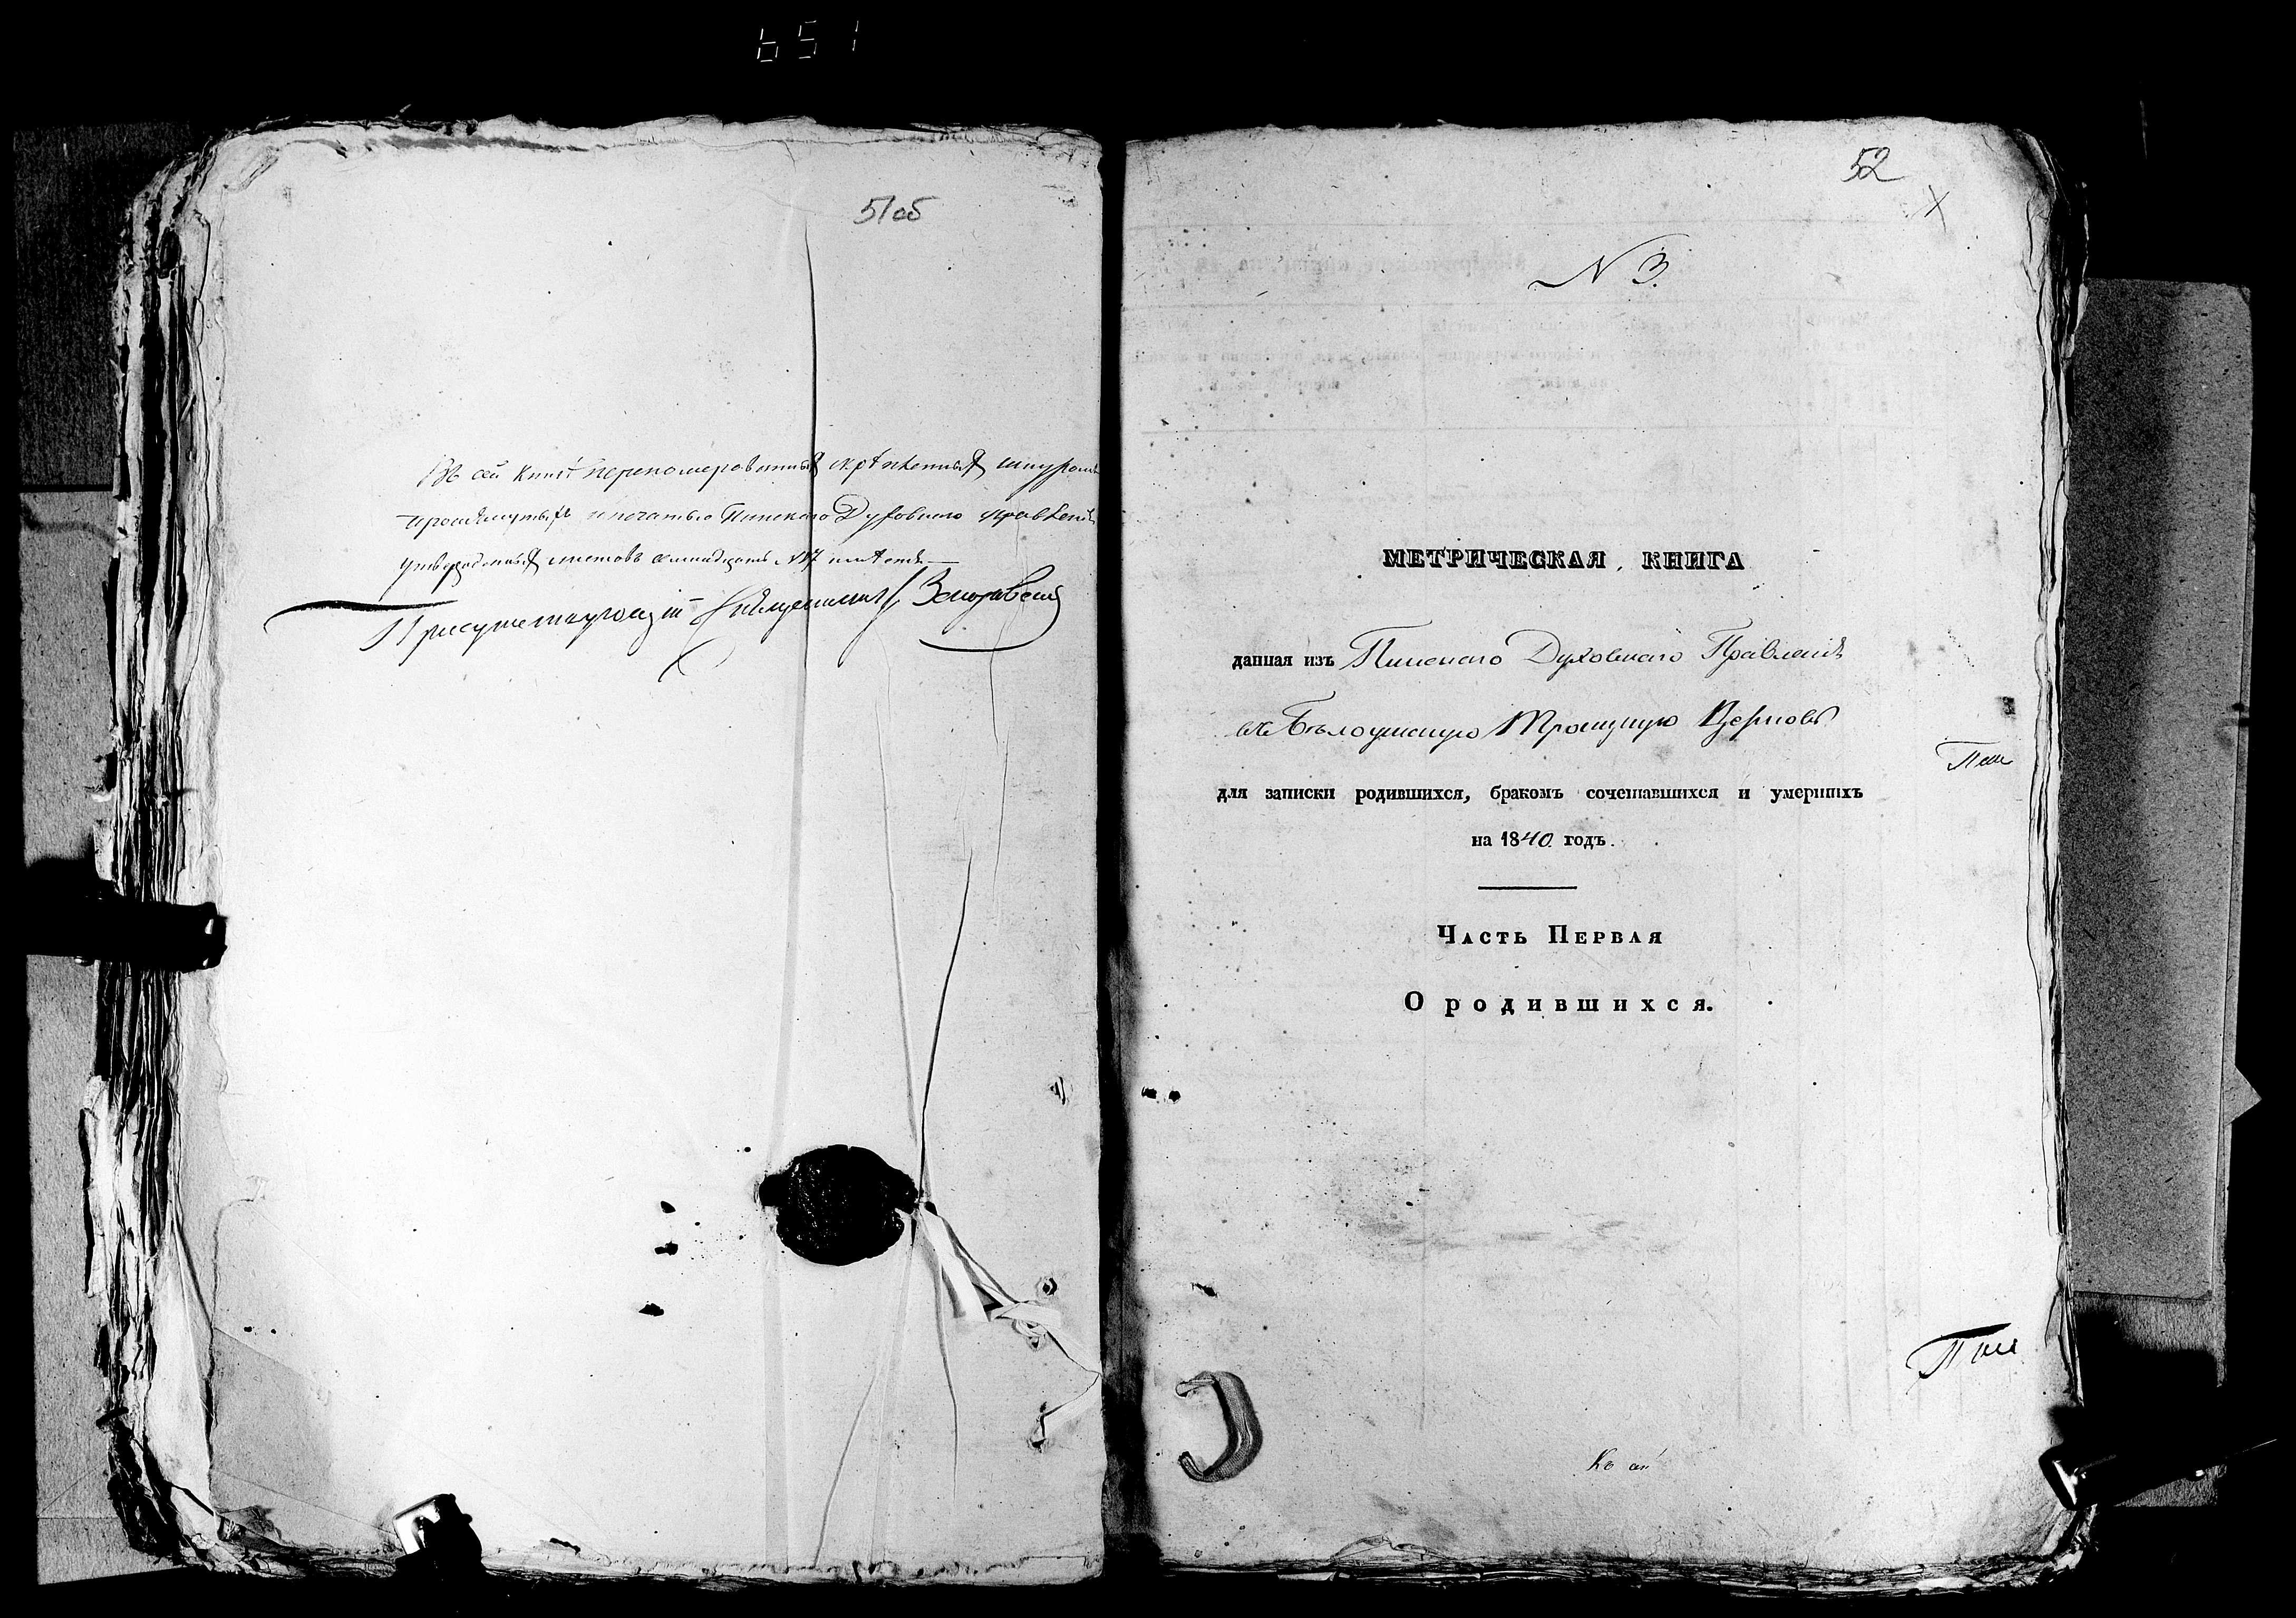 651
51об
Въ сей книгѣ перенумерованныхъ скрѣпленныхъ шнуромъ
прошнурныхъ и печатью Пинскаго Духовнаго правленія
утвержденныхъ листовъ семнадцать №17
Присутствующій Священникъ
52
N 3.
МЕТРИЧЕСКАЯ КНИГА
данная изъ Пинскаго Духовнаго Правленія
въ Бѣлоушскую Троицкую Церковь
для записки родившихся, бракомъ сочетавшихся и умершихъ
на 1840. годъ.
Часть Первая
О родившихся.